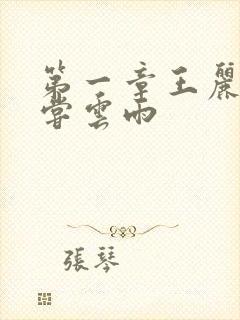 第一章王麗
嘗雲雨
張琴